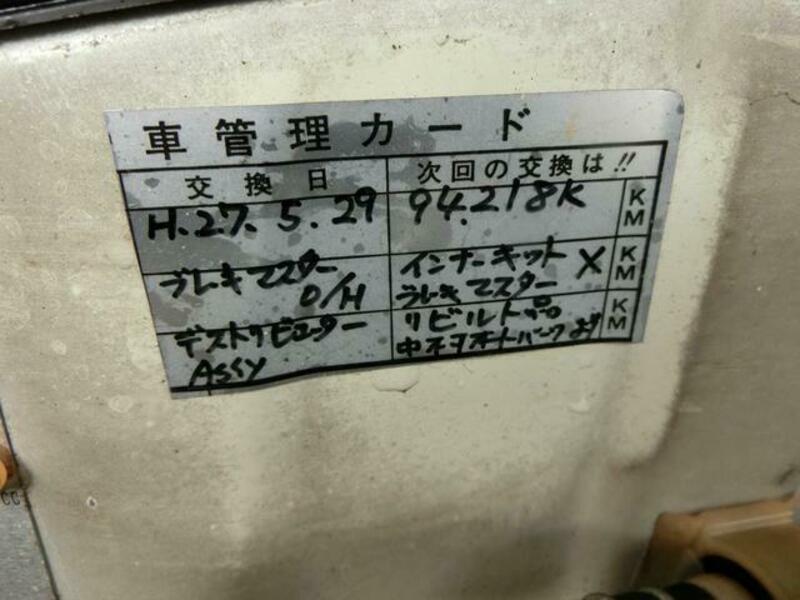 車管理カード
交換日
次回の交換は!!
H.27.5.29
94.218K
KM
ブレーキマスター
O/H
インナーキット X
ブレーキマスター
KM
デストリビューター
ASSY
リビルト品
オートパーツより
KM
CC